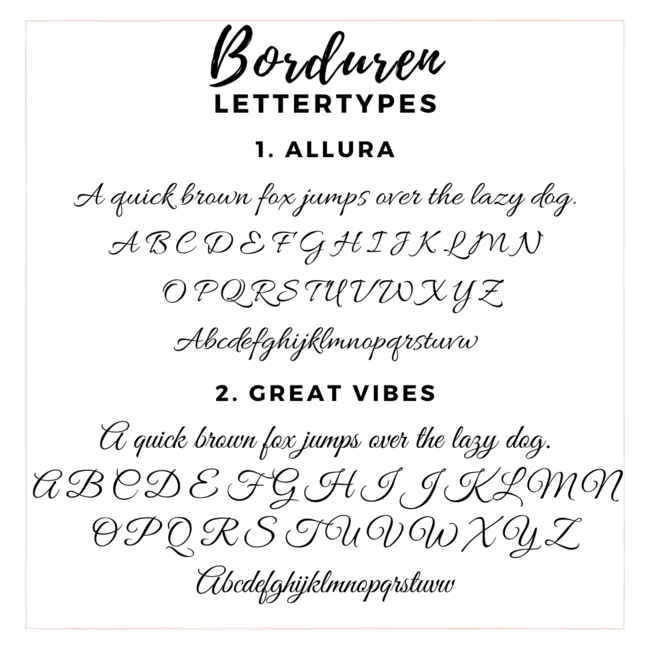 Borduren
LETTERTYPES
1. ALLURA
A quick brown fox jumps over the lazy dog.
A B C D E F G H I J K L M N
O P Q R S T U V W X Y Z
Abcdefghijklmnopqrstuvw
2. GREAT VIBES
A quick brown fox jumps over the lazy dog.
A B C D E F G H I J K L M N
O P Q R S T U V W X Y Z
Abcdefghijklmnopqrstuvw